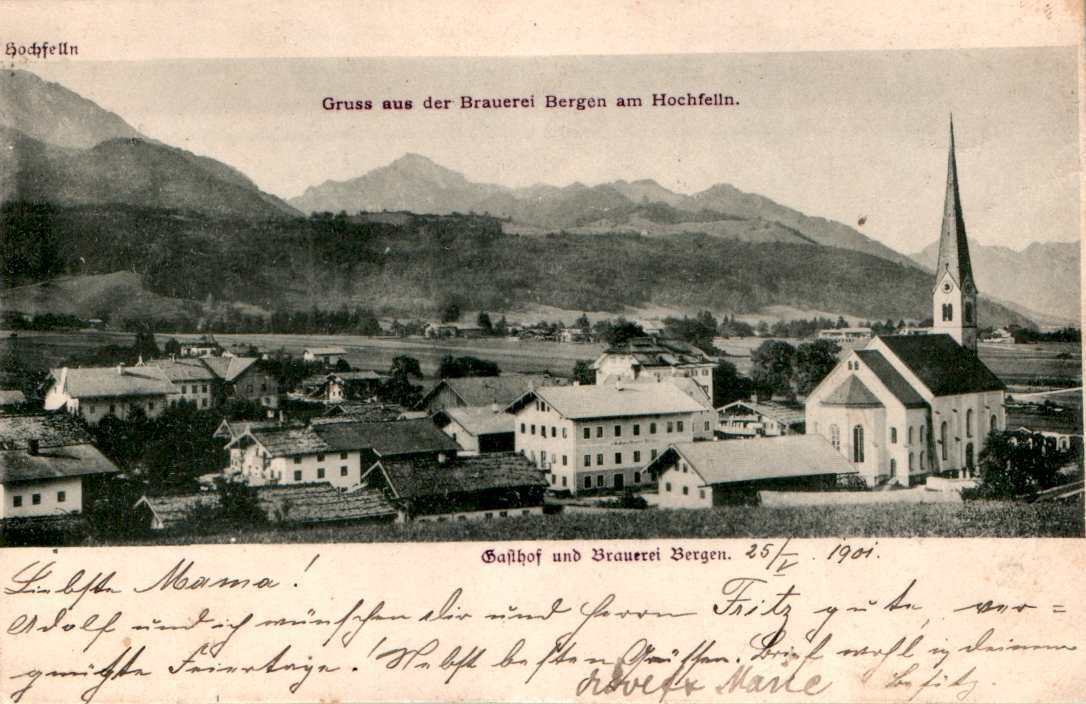 Hochfelln
Gruss aus der Brauerei Bergen am Hochfelln.
Gasthof und Brauerei Bergen. 25/V. 1901.
Liebste Mama!
Adolf und ich wünschen dir und Herrn Fritz gute, ver=
gnügte Feiertage. Nebst besten Grüssen. Brief wohl in deinem
Marie besitz.